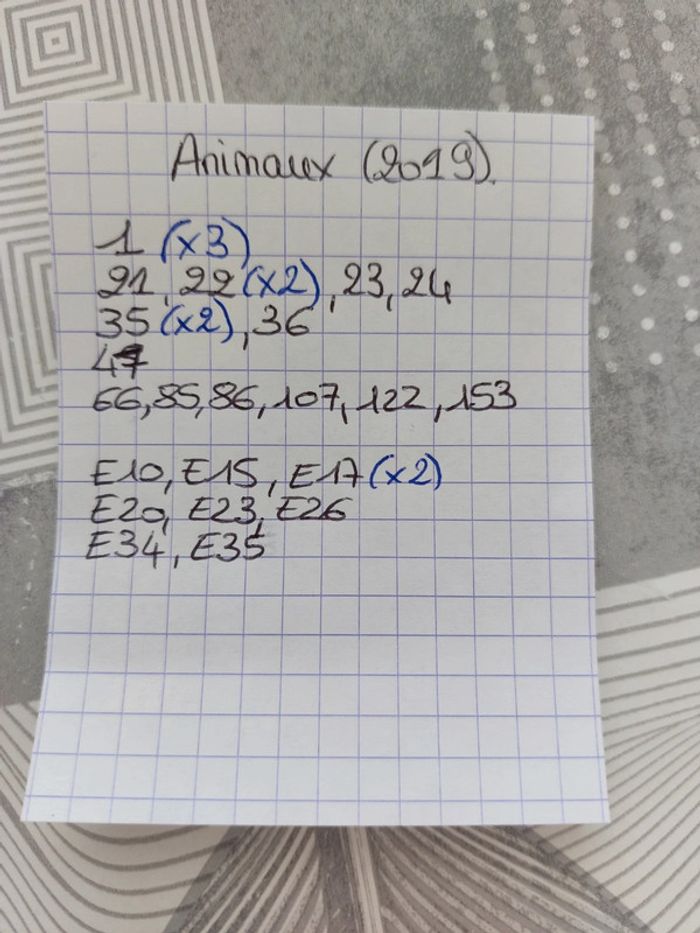 Animaux (2019).
1 (x3)
21, 22 (x2), 23, 24
35 (x2), 36
47
66, 85, 86, 107, 122, 153
E10, E15, E17 (x2)
E20, E23, E26
E34, E35